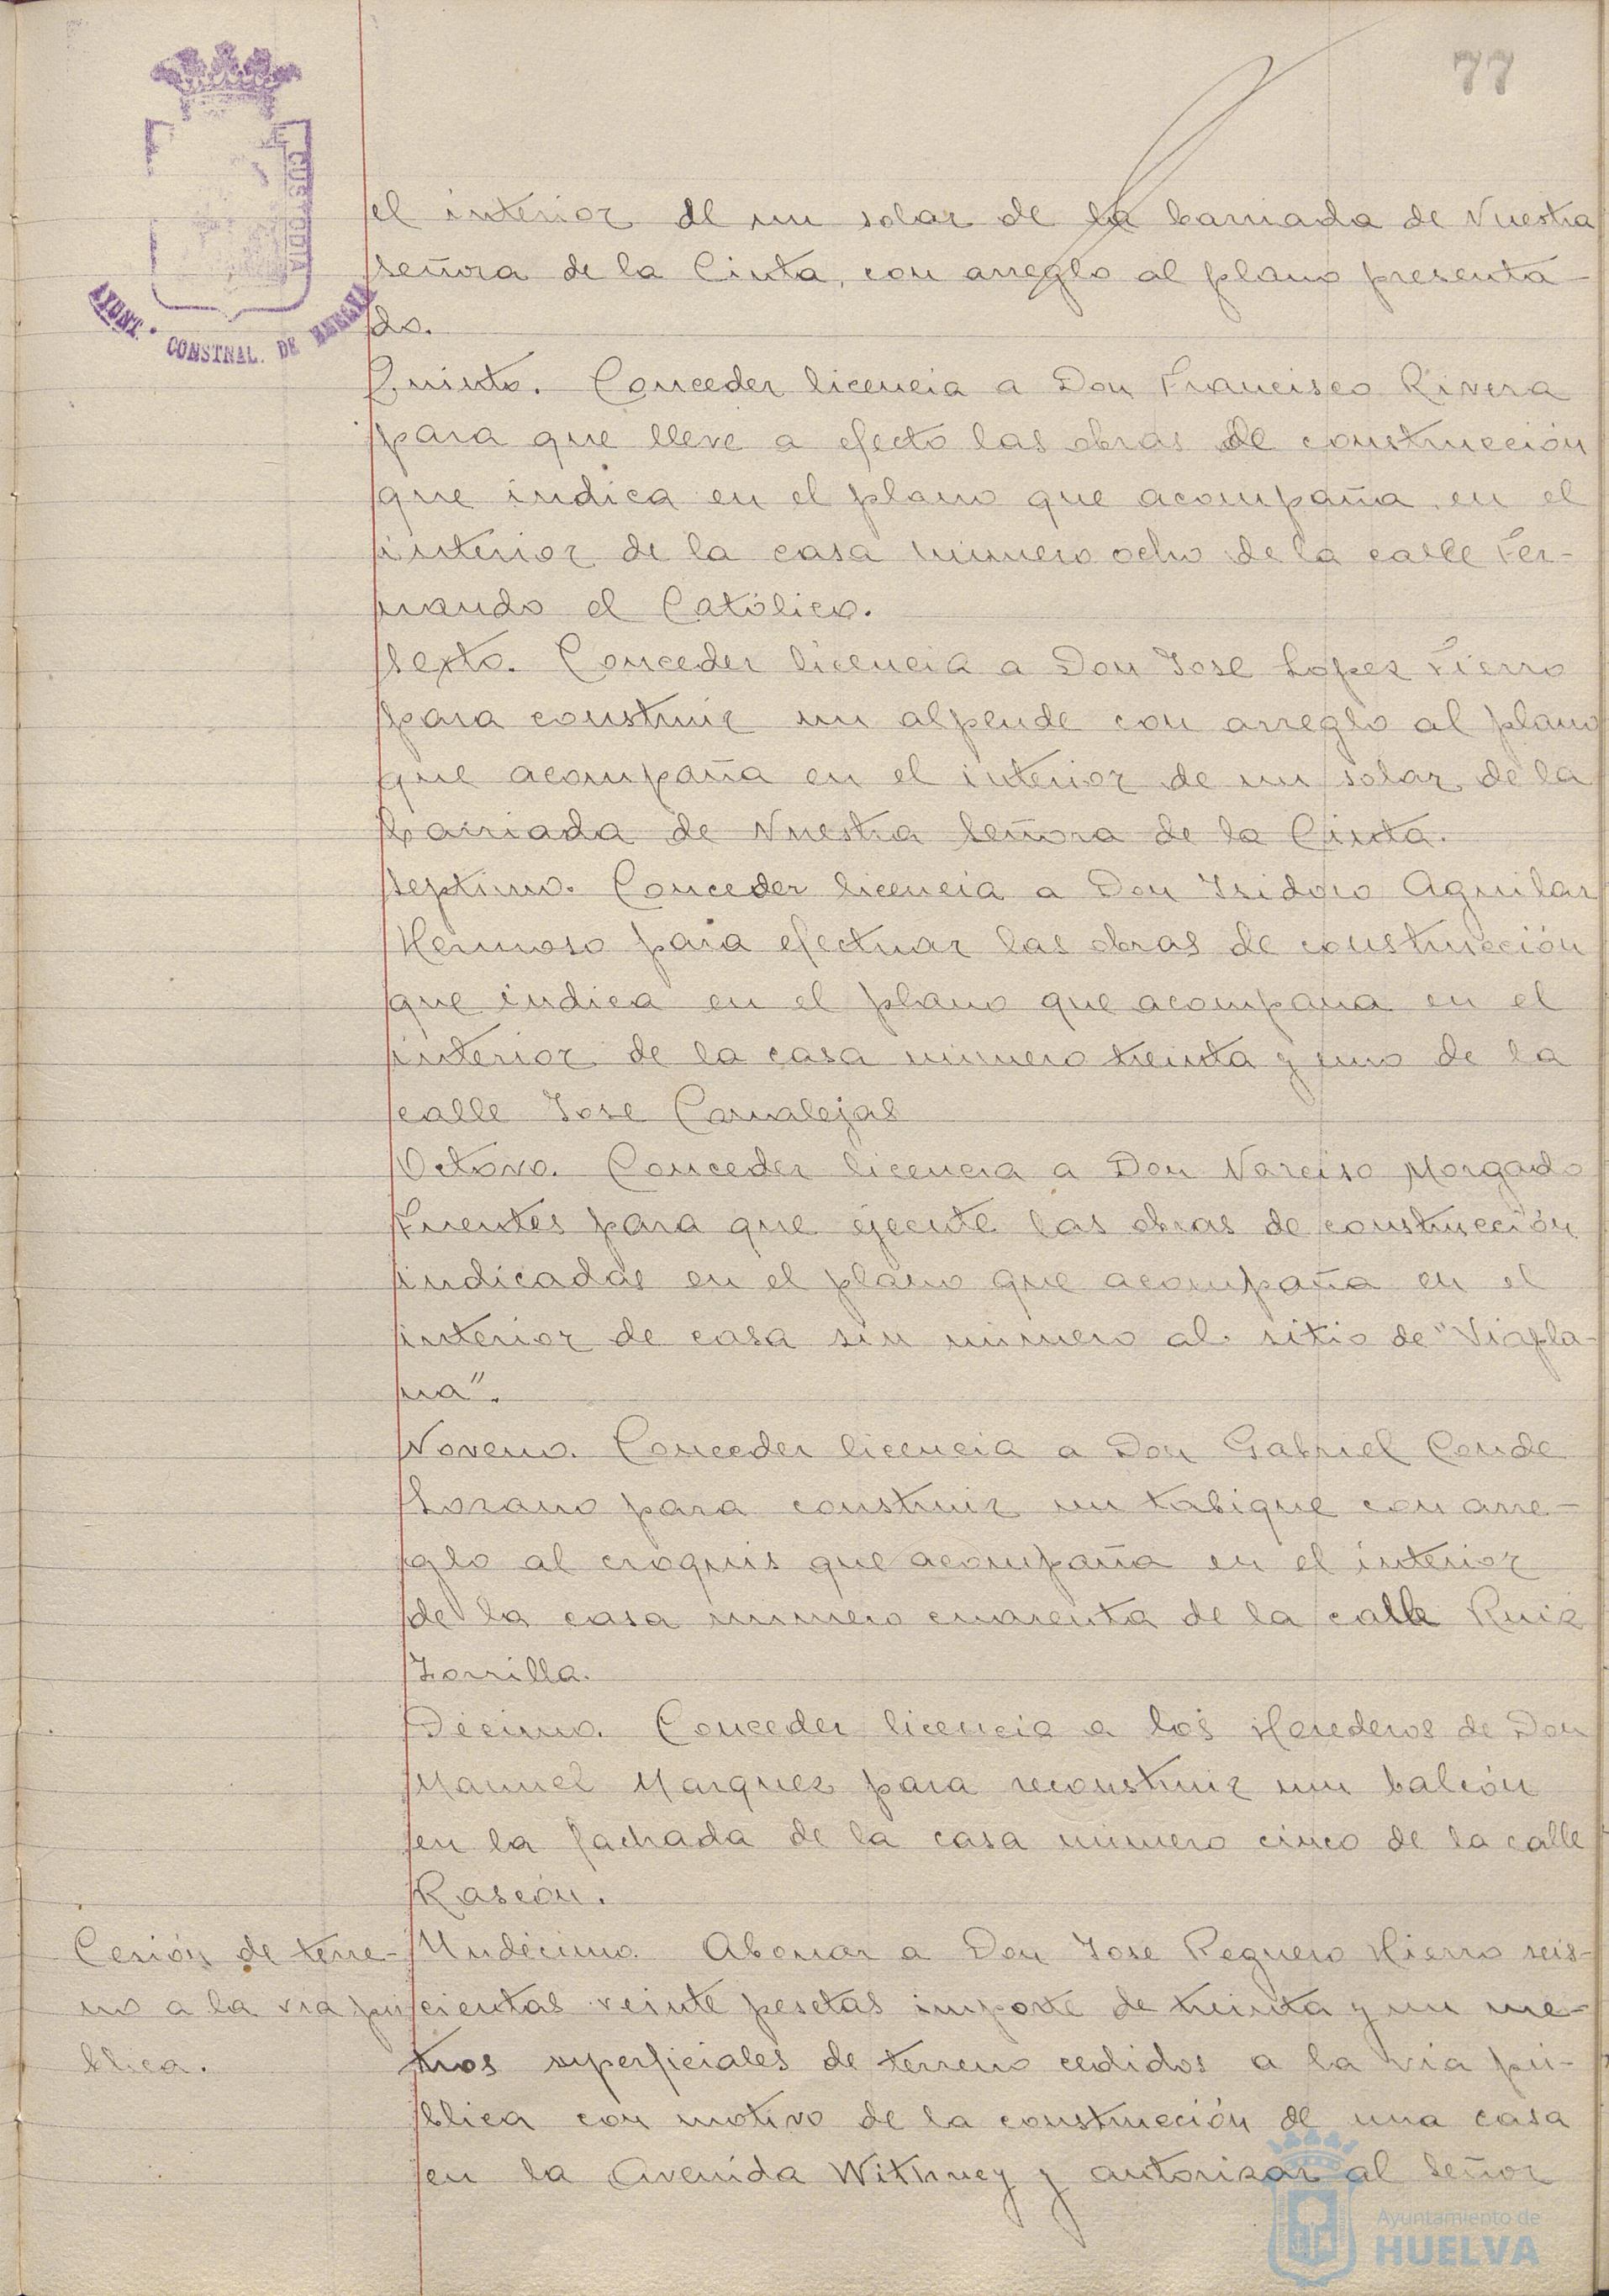 77
CUSTODIA
AYUNT. CONSTNAL. DE HUELVA
el interior de un solar de la barriada de Nuestra
Señora de la Cinta, con arreglo al plano presenta-
do.
Quinto. Conceder licencia a Don Francisco Rivera
para que lleve a efecto las obras de construcción
que indica en el plano que acompaña, en el
interior de la casa número ocho de la calle Fer-
nando el Católico.
Sexto. Conceder licencia a Don Jose Lopez Fierro
para construir un alpende con arreglo al plano
que acompaña en el interior de un solar de la
barriada de Nuestra Señora de la Cinta.
Septimo. Conceder licencia a Don Isidoro Aguilar
Hermoso para efectuar las obras de construcción
que indica en el plano que acompana en el
interior de la casa número treinta y uno de la
calle Jose Canalejas
Octavo. Conceder licencia a Don Narciso Morgado
Fuentes para que ejecute las obras de construcción
indicadas en el plano que acompaña en el
interior de casa sin número al sitio de "Viapla-
na".
Noveno. Conceder licencia a Don Gabriel Conde
Lozano para construir un tabique con arre-
glo al croquis que acompaña en el interior
de la casa número cuarenta de la calle Ruiz
Zorrilla.
Décimo. Conceder licencia a los Herederos de Don
Manuel Marquez para reconstruir un balcón
en la fachada de la casa número cinco de la calle
Rascón.
Cesión de terre-
no a la via pú
blica.
Undécimo. Abonar a Don Jose Reguero Hierro seis-
cientas veinte pesetas importe de treinta y un me-
tros superficiales de terreno cedidos a la via pú-
blica con motivo de la construcción de una casa
en la Avenida Withney y autorizar al Señor
Ayuntamiento de
HUELVA